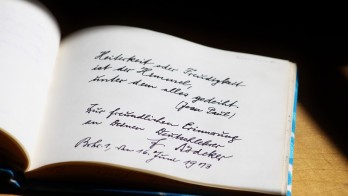 Heiterkeit oder Freudigkeit
ist der Himmel,
unter dem alles gedeiht.
(Jean Paul)
Zur freundlichen Erinnerung
an Deinen Deutschlehrer
F. Lüdeker
den 16. Juni 1973